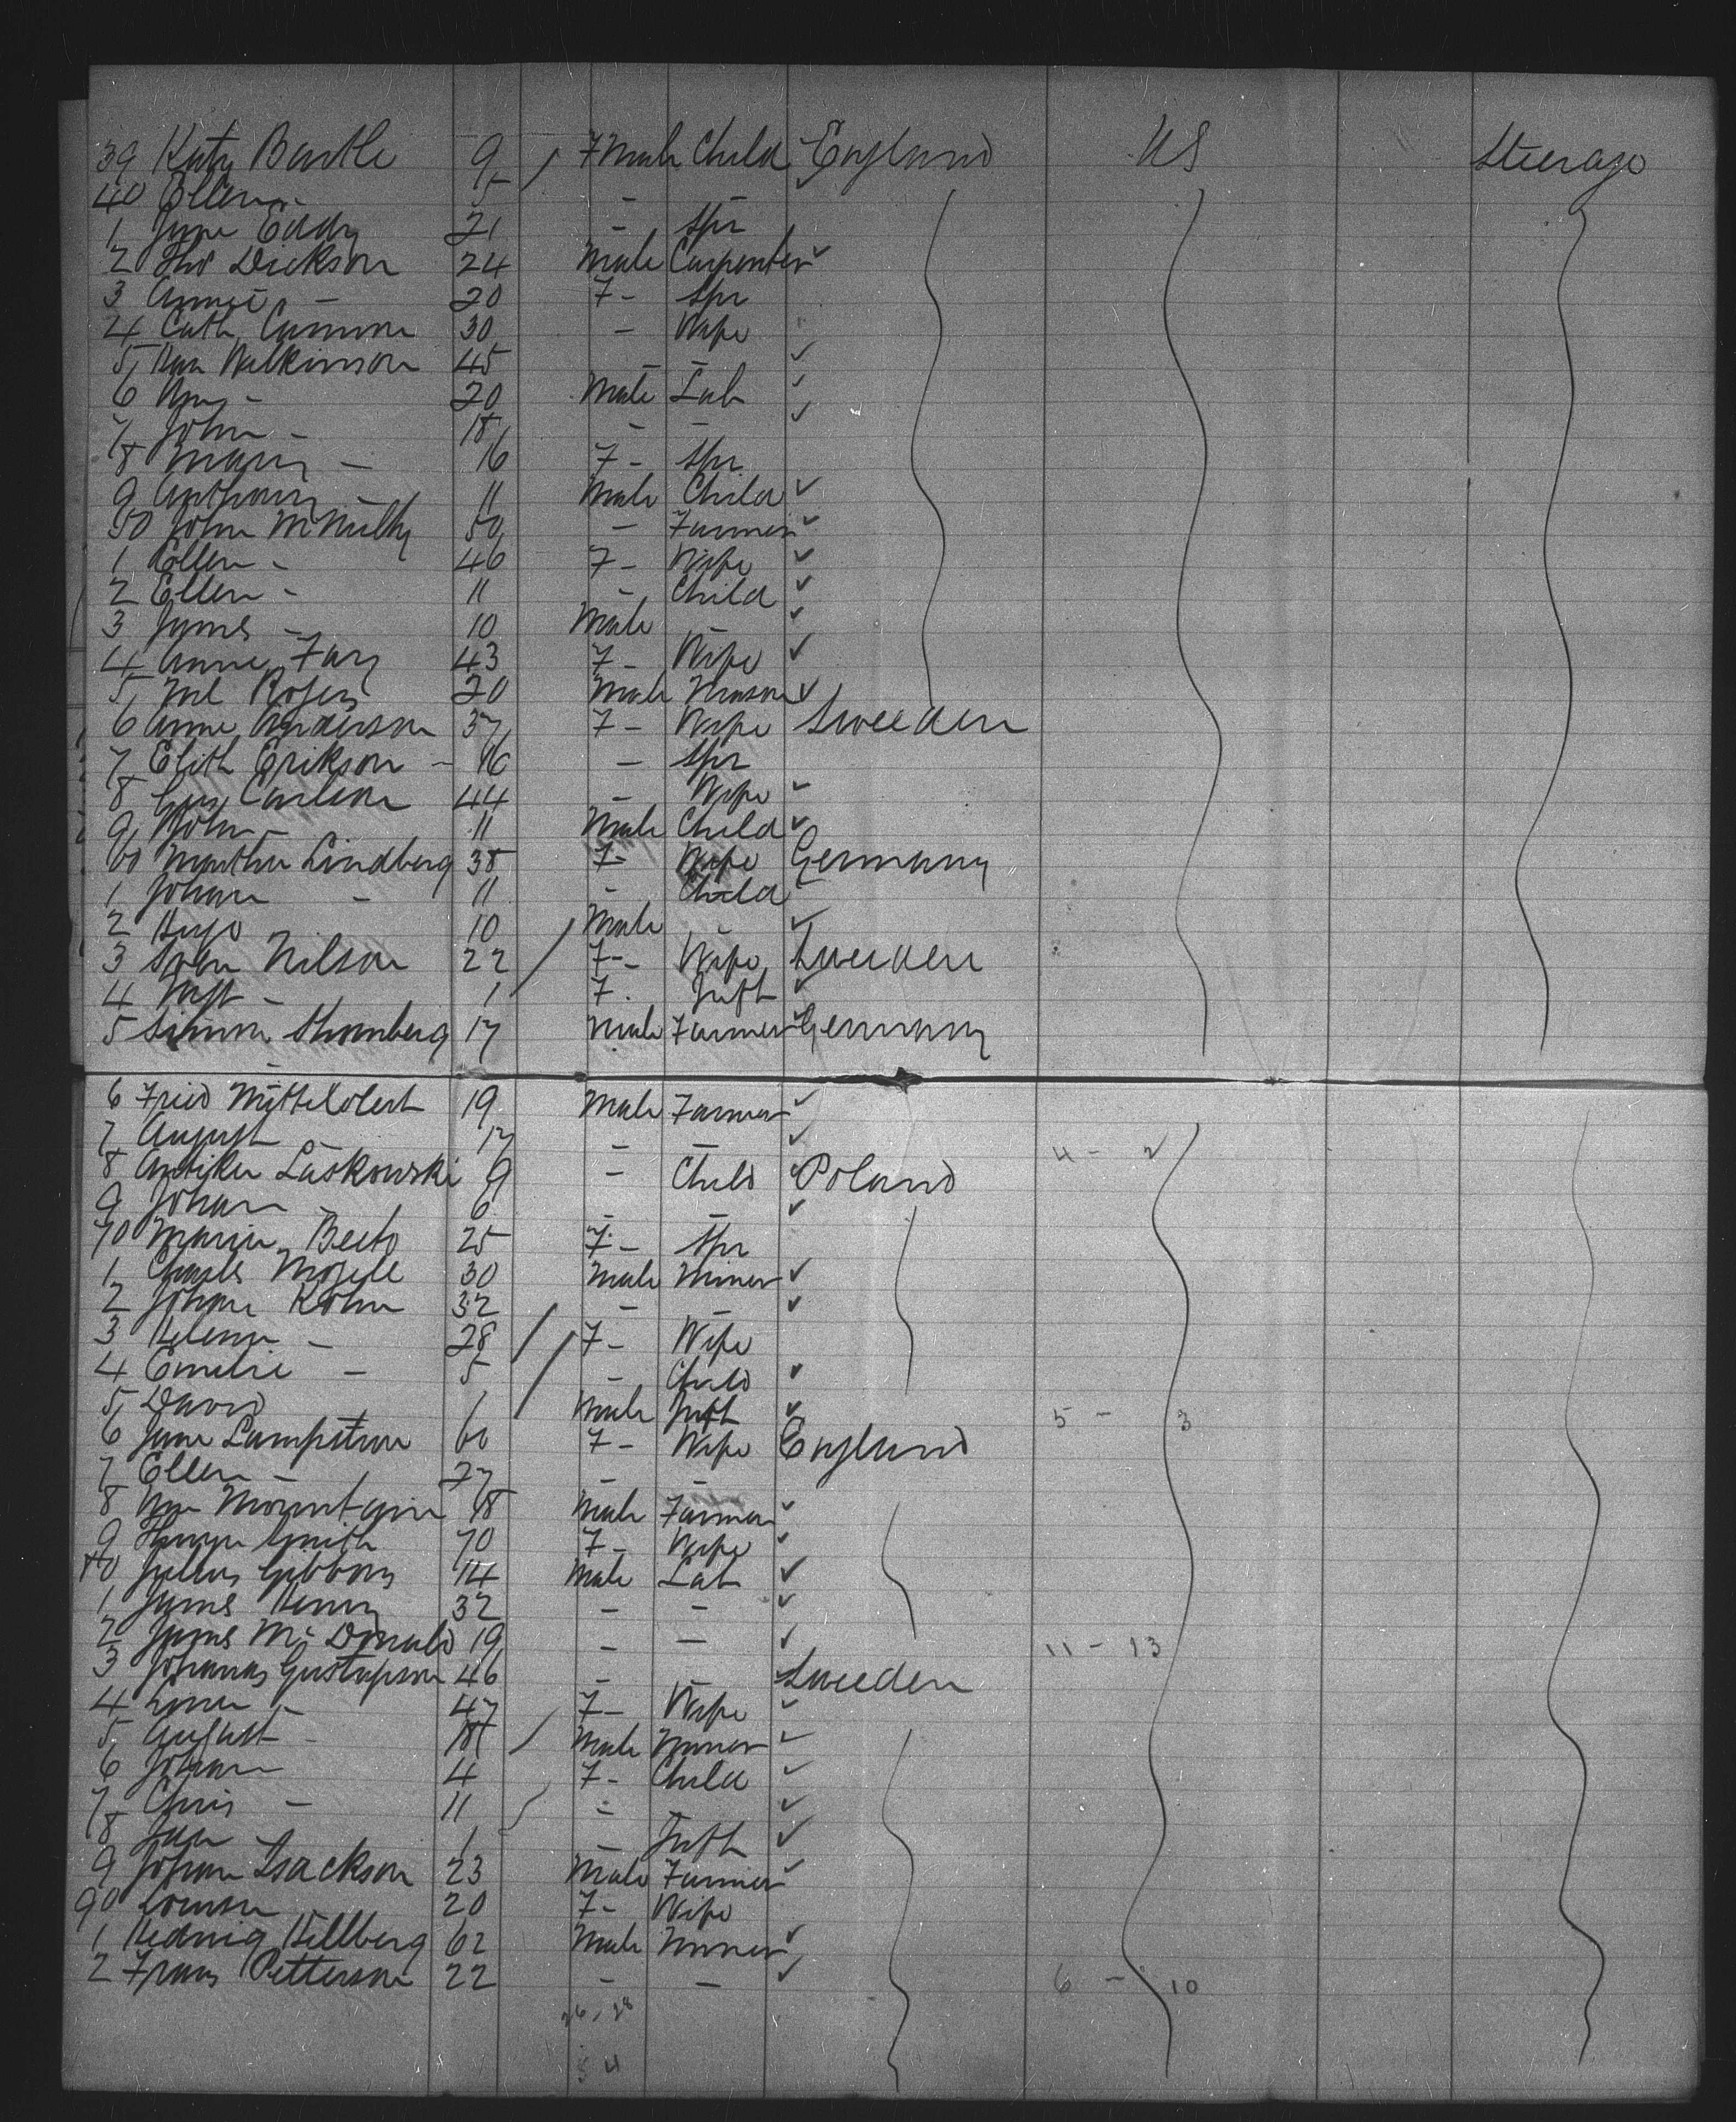 39 Katy Bartle 9 Female Child England US Steerage
40 Ellen - 5 - -
1 Jane Eddy 21 - Spr
2 Tho Dickson 24 Male Carpenter
3 Annie - 20 F - Spr
4 Cath 30 - Wife
5 Wilkinson 45 - -
6 - 20 Male Lab
7 John - 18 - -
8 Mary - 16 F - Spr
9 Anthony - 11 Male Child
50 John McNulty 50 - Farmer
1 Ellen - 46 F - Wife
2 Ellen - 11 - Child
3 James - 10 Male -
4 Anne 43 F - Wife
5 20 Male Mason
6 Anne Anderson 37 F - Wife Sweeden
7 Erikson - 16 - Spr
8 Carlson 44 - Wife
9 John - 11 Male Child
60 Martha Lindberg 38 F - Wife Germany
1 Johan - 11 - Child
2 Hugo 10 Male -
3 Nilson 22 F - Wife Sweeden
4 Inft - 1 F. Inft
5 17 Male Farmer Germany
6 Fried 19 Male Farmer
7 August - 17 - -
8 Laskowski 9 - Child Poland
9 Johan - 6 - -
70 Maria 25 F - Spr
1 Charles 30 Male Miner
2 Johan Kohn 32 - -
3 Helena - 28 F - Wife
4 Emelie - 5 - Child
5 David 1 Male Inft 5 - 3
6 Jane 60 F - Wife England
7 Ellen - 27 - -
8 Mountain 18 Male Farmer
9 Smith 70 F - Wife
80 Gibbons 14 Male Lab
1 James Henry 32 - -
2 James McDonald 19 - - 11 - 13
3 Johanas Gustafson 46 - Sweeden
4 - 47 F - Wife
5 August - 18 Male Miner
6 Johan 4 F - Child
7 Chris - 11 - -
8 1 - Inft
9 Johan Isackson 23 Male Farmer
90 20 F - Wife
1 Hedwig Hillberg 62 Male Miner
2 Frans Petterson 22 - - 6 - 10